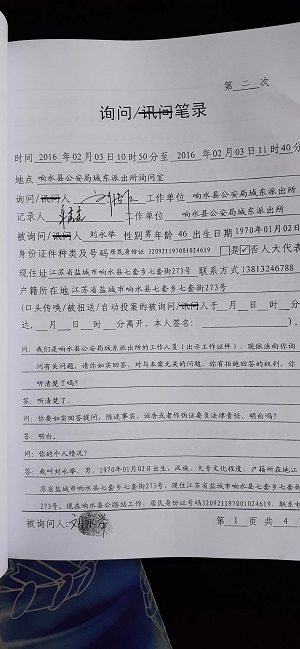 第 二 次
询问/讯问笔录
时间 2016 年 02 月 03 日 10 时 50 分至 2016 年 02 月 03 日 11 时 40 分
地点 响水县公安局城东派出所询问室
询问/讯问人 工作单位 响水县公安局城东派出所
记录人 工作单位 响水县公安局城东派出所
被询问/讯问人 刘永举 性别 男 年龄 46 出生日期 1970年01月02日
身份证件种类及号码 居民身份证 320921197001024619 □是☑否人大代表
现住址 江苏省盐城市响水县七套乡七套街273号 联系方式 13813246788
户籍所在地 江苏省盐城市响水县七套乡七套街273号
(口头传唤/被扭送/自动投案的被询问/讯问人于 月 日 时 分
达, 月 日 时 分离开，本人签名： )。
问：我们是响水县公安局城东派出所的工作人员（出示工作证件）。现依法向你询
问有关问题，请你如实回答，对与本案无关的问题，你有拒绝回答的权利，你
听清楚了吗？
答：听清楚了。
问：你要如实回答提问，陈述事实，诬告或者作伪证要负法律责任，明白吗？
答：明白。
问：你的个人情况？
答：我叫刘永举，男，1970年01月02日出生，汉族，大专文化程度，户籍所在地江
苏省盐城市响水县七套乡七套街273号，现住江苏省盐城市响水县七套乡七套街
273号，现在响水县公路站工作，居民身份证号码320921197001024619，联系电
被询问人：刘永举 第 1 页 共 4